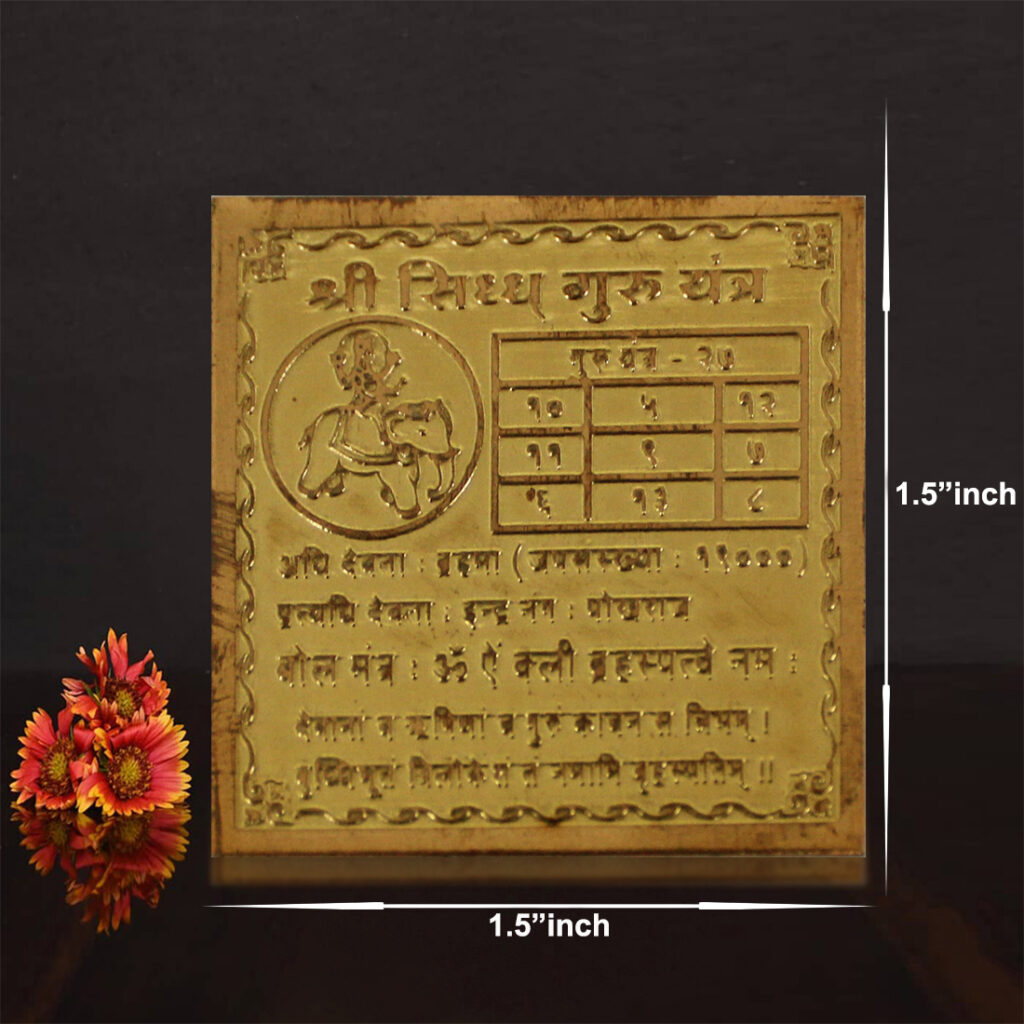 श्री सिध्ध् गुरु यंत्र
गुरु यंत्र - २७
१० ५ १२
११ ९ ७
६ १३ ८
अधि देवता : ब्रहमा (जपसंख्या : १९०००)
प्रत्यधि देवता : इन्द्र नग : पोखराज
मंत्र : ॐ ऐं क्ली ब्रहस्पत्वे नम :
देवानां च ऋषिणां च गुरुं
त्रिलोकेशं तं नमामि बृहस्पतिम् ॥
1.5”inch
1.5”inch